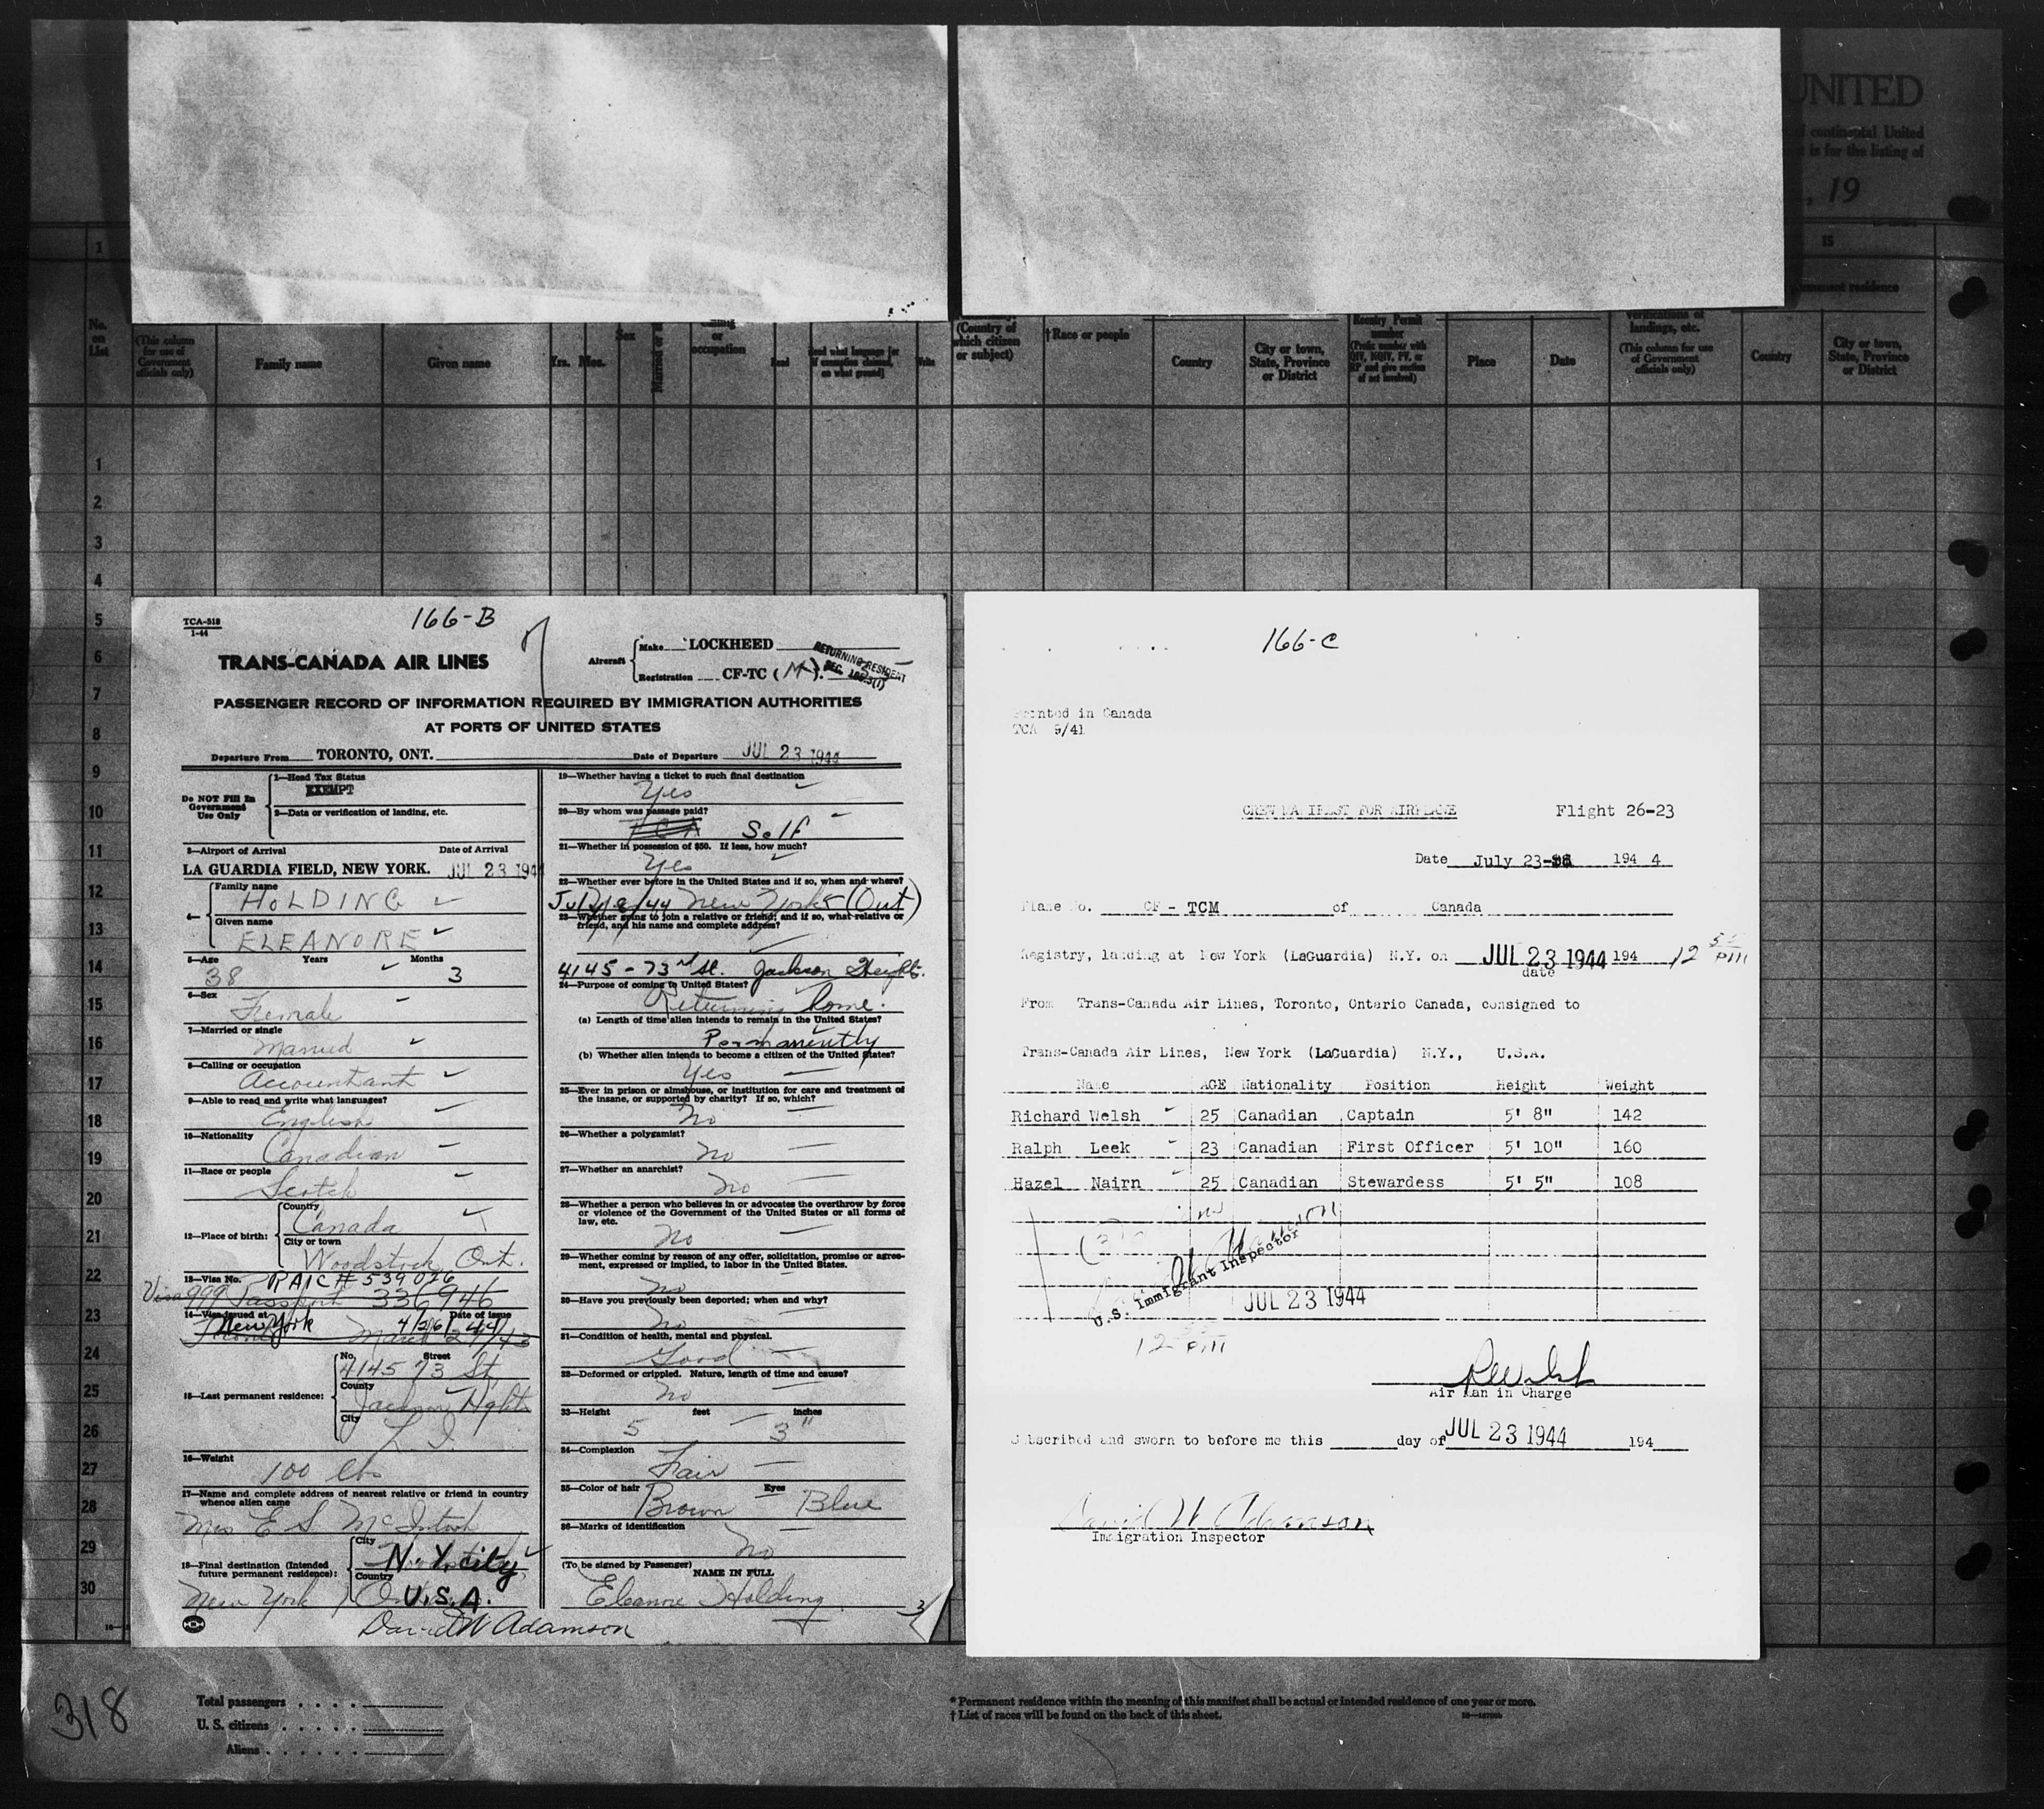 UNITED
of continental United
is for the listing of
, 19
1
15
permanent residence
No.
on
List
(This column
for use of
Government
officials only)
Family name
Given name
Yrs.
Mos.
Sex
Married or
calling
or
occupation
Read
Read what language [or
if exemption claimed,
on what ground]
Write
(Country of
which citizen
or subject)
†Race or people
Country
City or town,
State, Province
or District
Reentry Permit
number
(Prefix number with
QIV, NQIV, PV, or
RP and give section
of act involved)
Place
Date
verifications of
landings, etc.
(This column for use
of Government
officials only)
Country
City or town,
State, Province
or District
1
2
3
4
5
6
7
8
9
10
11
12
13
14
15
16
17
18
19
20
21
22
23
24
25
26
27
28
29
30
TCA-518
1-44
166-B
TRANS-CANADA AIR LINES
Aircraft
Make LOCKHEED
Registration CF-TC (M).
RETURNING RESIDENT
PASSENGER RECORD OF INFORMATION REQUIRED BY IMMIGRATION AUTHORITIES
AT PORTS OF UNITED STATES
Departure From TORONTO, ONT.
Date of Departure JUL 23 1944
Do NOT Fill In
Government
Use Only
1—Head Tax Status
EXEMPT
2—Data or verification of landing, etc.
3—Airport of Arrival Date of Arrival
LA GUARDIA FIELD, NEW YORK. JUL 23 1944
4—
Family name
HOLDING
Given name
ELEANORE
5—Age Years Months
38 3
6—Sex
Female
7—Married or single
Married
8—Calling or occupation
Accountant
9—Able to read and write what languages?
English
10—Nationality
Canadian
11—Race or people
Scotch
12—Place of birth:
Country
Canada
City or town
Woodstock Ont.
13—Visa No. RAIC # 539026
Visa 999 Passport 336946
14—Visa issued at Date of issue
New York 4/26/44
March 24/43
15—Last permanent residence:
No. Street
4145 73 St
County
Jackson Hghts
City
L I.
16—Weight
100 lbs
17—Name and complete address of nearest relative or friend in country
whence alien came
Mrs E S McIntosh
18—Final destination (Intended
future permanent residence):
City
N.Y. city
Country
New York U.S.A.
David W Adamson
19—Whether having a ticket to such final destination
Yes
20—By whom was passage paid?
TCA Self
21—Whether in possession of $50. If less, how much?
Yes
22—Whether ever before in the United States and if so, when and where?
July 8/44 New York (Out)
23—Whether going to join a relative or friend; and if so, what relative or
friend, and his name and complete address?
4145 - 73rd St. Jackson Heights.
24—Purpose of coming to United States?
Returning home.
(a) Length of time alien intends to remain in the United States?
Permanently
(b) Whether alien intends to become a citizen of the United States?
Yes
25—Ever in prison or almshouse, or institution for care and treatment of
the insane, or supported by charity? If so, which?
No
26—Whether a polygamist?
No
27—Whether an anarchist?
No
28—Whether a person who believes in or advocates the overthrow by force
or violence of the Government of the United States or all forms of
law, etc.
No
29—Whether coming by reason of any offer, solicitation, promise or agree-
ment, expressed or implied, to labor in the United States.
No
30—Have you previously been deported; when and why?
No
31—Condition of health, mental and physical.
Good
32—Deformed or crippled. Nature, length of time and cause?
No
33—Height feet inches
5 3"
34—Complexion
Fair
35—Color of hair Eyes
Brown Blue
36—Marks of identification
No
(To be signed by Passenger) NAME IN FULL
Eleanore Holding
3
166-C
Printed in Canada
TCA 9/41
CREW MANIFEST FOR AIRPLANE Flight 26-23
Date July 23- 194 4
Plane No. CF - TCM of Canada
Registry, landing at New York (LaGuardia) N.Y. on JUL 23 1944 194 12 55 PM
date
From Trans-Canada Air Lines, Toronto, Ontario Canada, consigned to
Trans-Canada Air Lines, New York (LaGuardia) N.Y., U.S.A.
Name AGE Nationality Position Height Weight
Richard Welsh 25 Canadian Captain 5' 8" 142
Ralph Leek 23 Canadian First Officer 5' 10" 160
Hazel Nairn 25 Canadian Stewardess 5' 5" 108
U.S. Immigrant Inspector
JUL 23 1944
12 PM
RWelsh
Air Man in Charge
Subscribed and sworn to before me this day of JUL 23 1944 194
David W Adamson
Immigration Inspector
318
Total passengers . . . .
U. S. citizens . . . . .
Aliens . . . . . .
* Permanent residence within the meaning of this manifest shall be actual or intended residence of one year or more.
† List of races will be found on the back of this sheet.